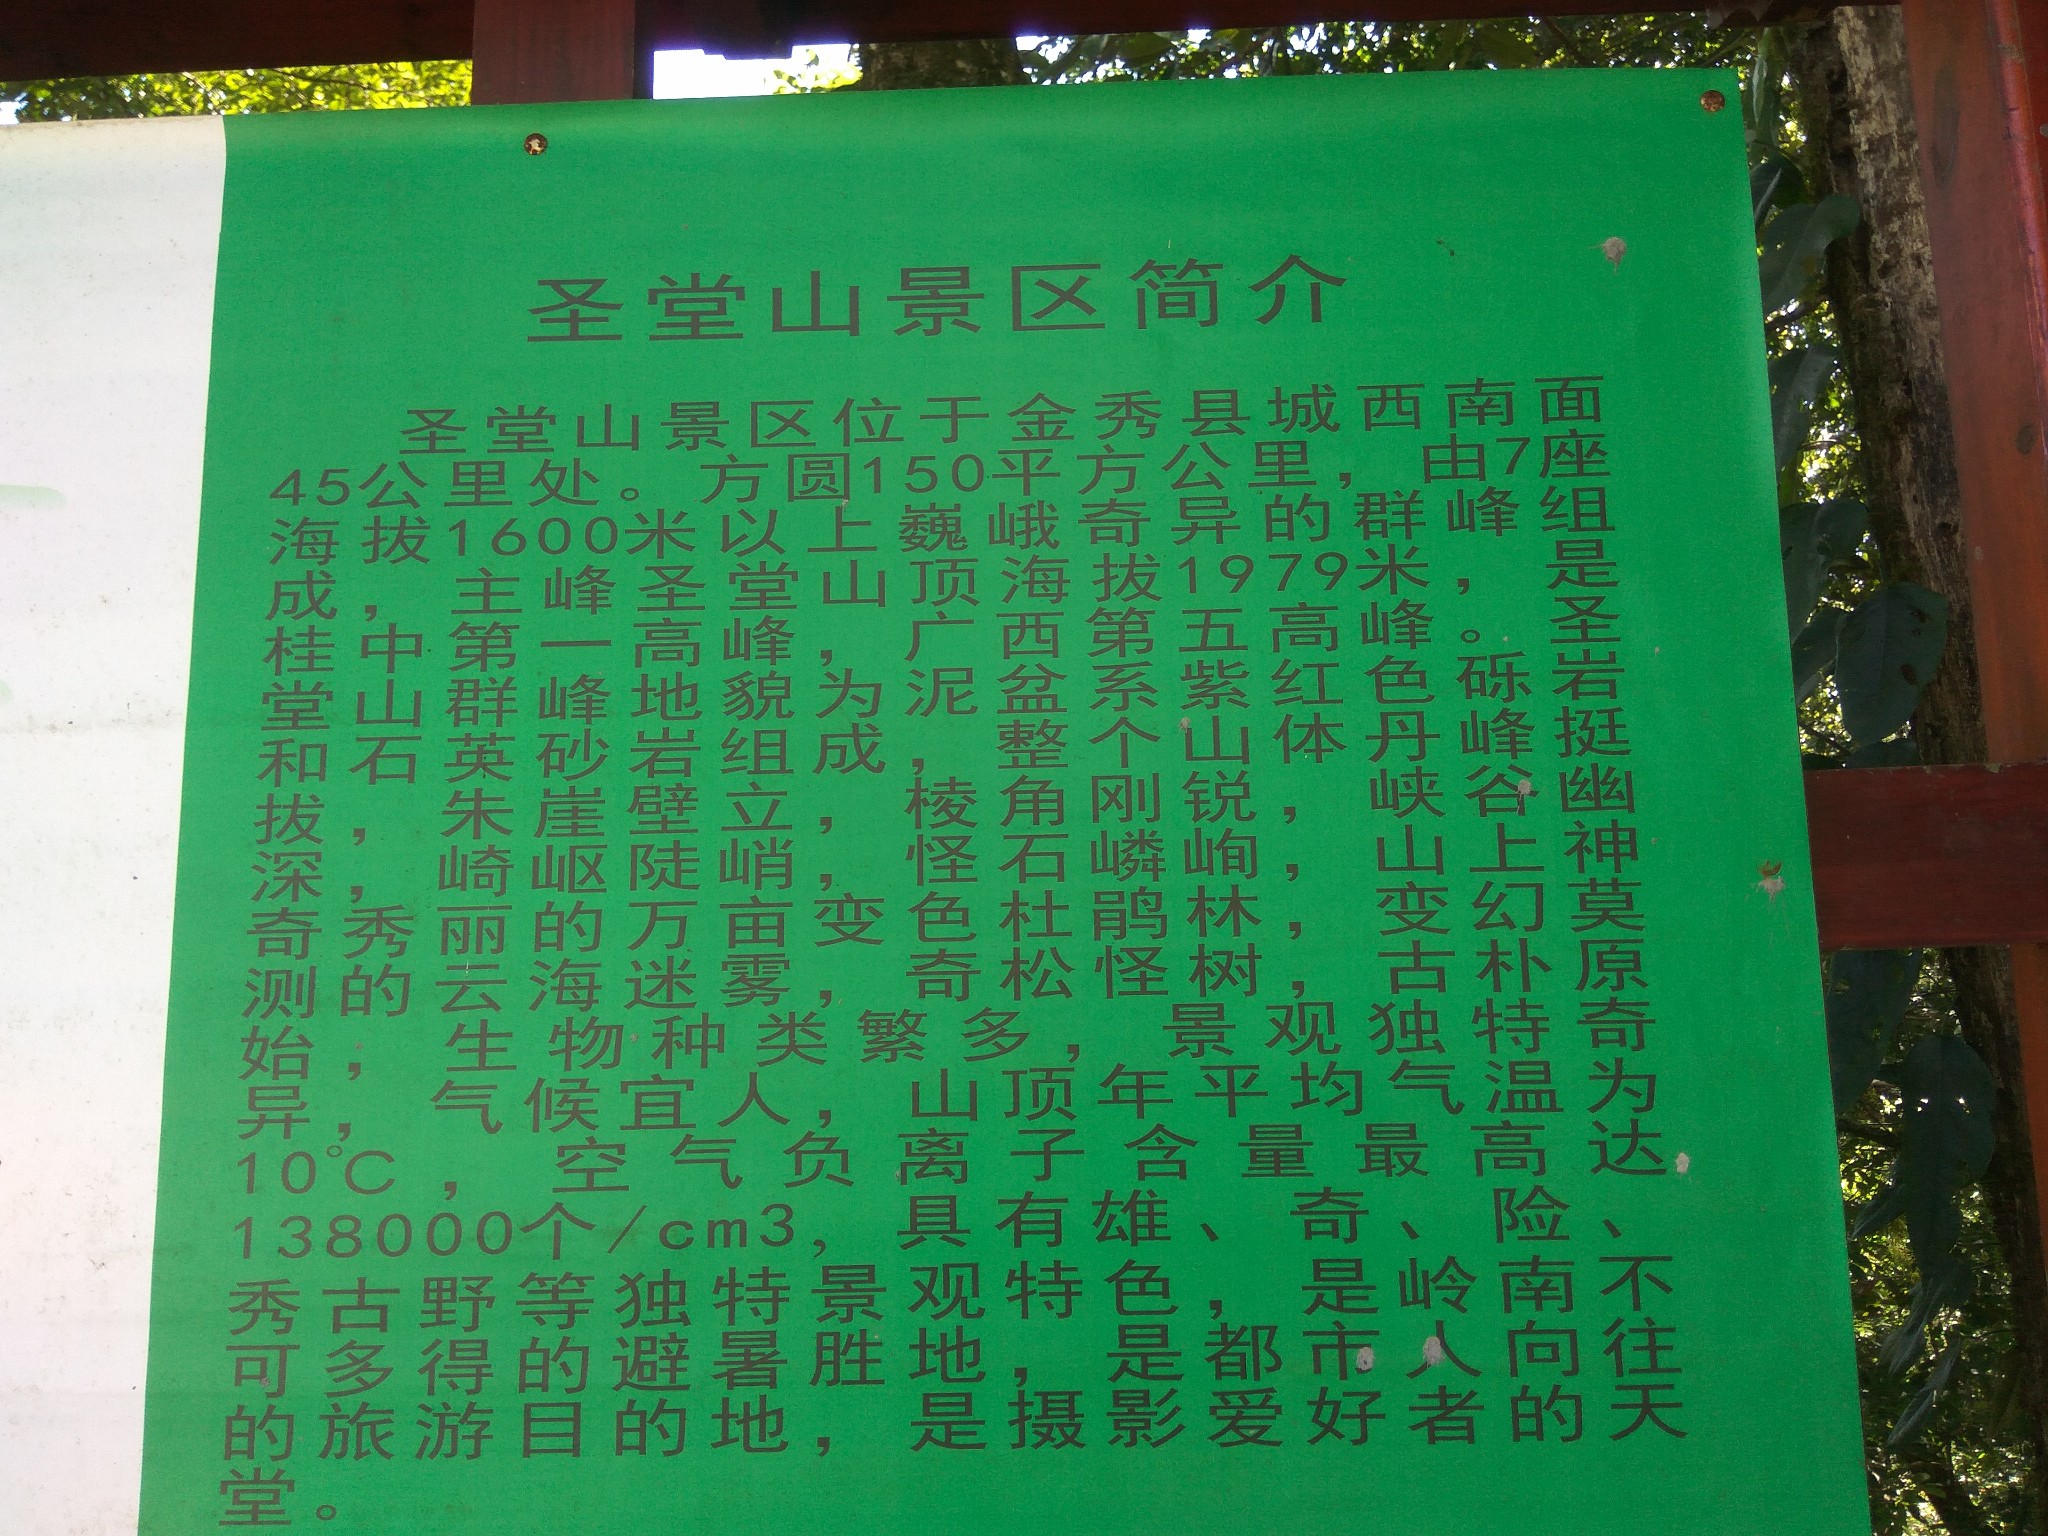 圣堂山景区简介
圣堂山景区位于金秀县城西南面
45公里处。方圆150平方公里，由7座
海拔1600米以上巍峨奇异的群峰组
成，主峰圣堂山顶海拔1979米，是
桂中第一高峰，广西第五高峰。圣
堂山群峰地貌为泥盆系紫红色砾岩
和石英砂岩组成，整个山体丹峰挺
拔，朱崖壁立，棱角刚锐，峡谷幽
深，崎岖陡峭，怪石嶙峋，山上神
奇秀丽的万亩变色杜鹃林，变幻莫
测的云海迷雾，奇松怪树，古朴原
始；生物种类繁多，景观独特奇
异，气候宜人，山顶年平均气温为
10℃，空气负离子含量最高达
138000个/cm3，具有雄、奇、险、
秀古野等独特景观特色，是岭南不
可多得的避暑胜地，是都市人向往
的旅游目的地，是摄影爱好者的天
堂。